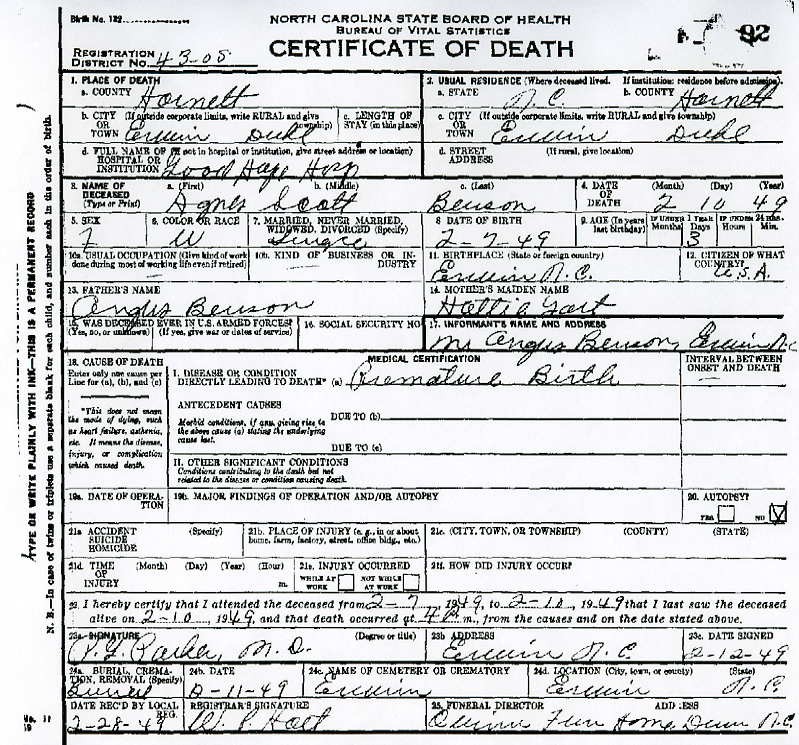 Birth No. 132
NORTH CAROLINA STATE BOARD OF HEALTH
BUREAU OF VITAL STATISTICS
CERTIFICATE OF DEATH
92
REGISTRATION DISTRICT No. 43-05
1. PLACE OF DEATH
a. COUNTY Harnett
2. USUAL RESIDENCE (Where deceased lived. If institution: residence before admission).
a. STATE N.C. b. COUNTY Harnett
b. CITY (If outside corporate limits, write RURAL and give township) OR TOWN Erwin Duke
c. LENGTH OF STAY (in this place)
c. CITY (If outside corporate limits, write RURAL and give township) OR TOWN Erwin Duke
d. FULL NAME OF (If not in hospital or institution, give street address or location) HOSPITAL OR INSTITUTION Good Hope Hosp
d. STREET ADDRESS (If rural, give location)
3. NAME OF DECEASED (Type or Print)
a. (First) Agnes b. (Middle) Scott c. (Last) Benson
4. DATE OF DEATH (Month) (Day) (Year) 2 10 49
5. SEX F
6. COLOR OR RACE W
7. MARRIED, NEVER MARRIED, WIDOWED, DIVORCED (Specify) Single
8 DATE OF BIRTH 2-7-49
9. AGE (In years last birthday) IF UNDER 1 YEAR Months Days 3 IF UNDER 24 HRS. Hours Min.
10a. USUAL OCCUPATION (Give kind of work done during most of working life even if retired)
10b. KIND OF BUSINESS OR INDUSTRY
11. BIRTHPLACE (State or foreign country) Erwin N.C.
12. CITIZEN OF WHAT COUNTRY? U.S.A.
13. FATHER'S NAME Angus Benson
14. MOTHER'S MAIDEN NAME Hattie
15. WAS DECEASED EVER IN U.S. ARMED FORCES? (Yes, no, or unknown) (If yes, give war or dates of service)
16. SOCIAL SECURITY NO
17. INFORMANT'S NAME AND ADDRESS Mr Angus Benson, Erwin N.C.
18. CAUSE OF DEATH
Enter only one cause per Line for (a), (b), and (c)
MEDICAL CERTIFICATION
INTERVAL BETWEEN ONSET AND DEATH
I. DISEASE OR CONDITION DIRECTLY LEADING TO DEATH* (a) Premature Birth
*This does not mean the mode of dying, such as heart failure, asthenia, etc. It means the disease, injury, or complication which caused death.
ANTECEDENT CAUSES
Morbid conditions, if any, giving rise to the above cause (a) stating the underlying cause last.
DUE TO (b)
DUE TO (c)
II. OTHER SIGNIFICANT CONDITIONS
Conditions contributing to the death but not related to the disease or condition causing death.
19a. DATE OF OPERATION
19b. MAJOR FINDINGS OF OPERATION AND/OR AUTOPSY
20. AUTOPSY?
YES NO
21a ACCIDENT SUICIDE HOMICIDE (Specify)
21b. PLACE OF INJURY (e.g., in or about home, farm, factory, street, office bldg., etc.)
21c. (CITY, TOWN, OR TOWNSHIP) (COUNTY) (STATE)
21d. TIME OF INJURY (Month) (Day) (Year) (Hour) m.
21e. INJURY OCCURRED
WHILE AT WORK NOT WHILE AT WORK
21f. HOW DID INJURY OCCUR?
22. I hereby certify that I attended the deceased from 2-7, 1949, to 2-10, 1949 that I last saw the deceased
alive on 2-10, 1949, and that death occurred at m., from the causes and on the date stated above.
23a. SIGNATURE (Degree or title) Parker, M.D.
23b ADDRESS Erwin N.C.
23c. DATE SIGNED 2-12-49
24a. BURIAL, CREMATION, REMOVAL (Specify) Burial
24b. DATE 2-11-49
24c. NAME OF CEMETERY OR CREMATORY Erwin
24d. LOCATION (City, town, or county) (State) Erwin N.C.
DATE REC'D BY LOCAL REG. 2-28-49
REGISTRAR'S SIGNATURE W. P. Holt
25. FUNERAL DIRECTOR ADDRESS
Quinn Fun Home Dunn N.C.
TYPE OR WRITE PLAINLY WITH INK—THIS IS A PERMANENT RECORD
N. B.—In case of twins or triplets use a separate blank for each child, and number each in the order of birth.